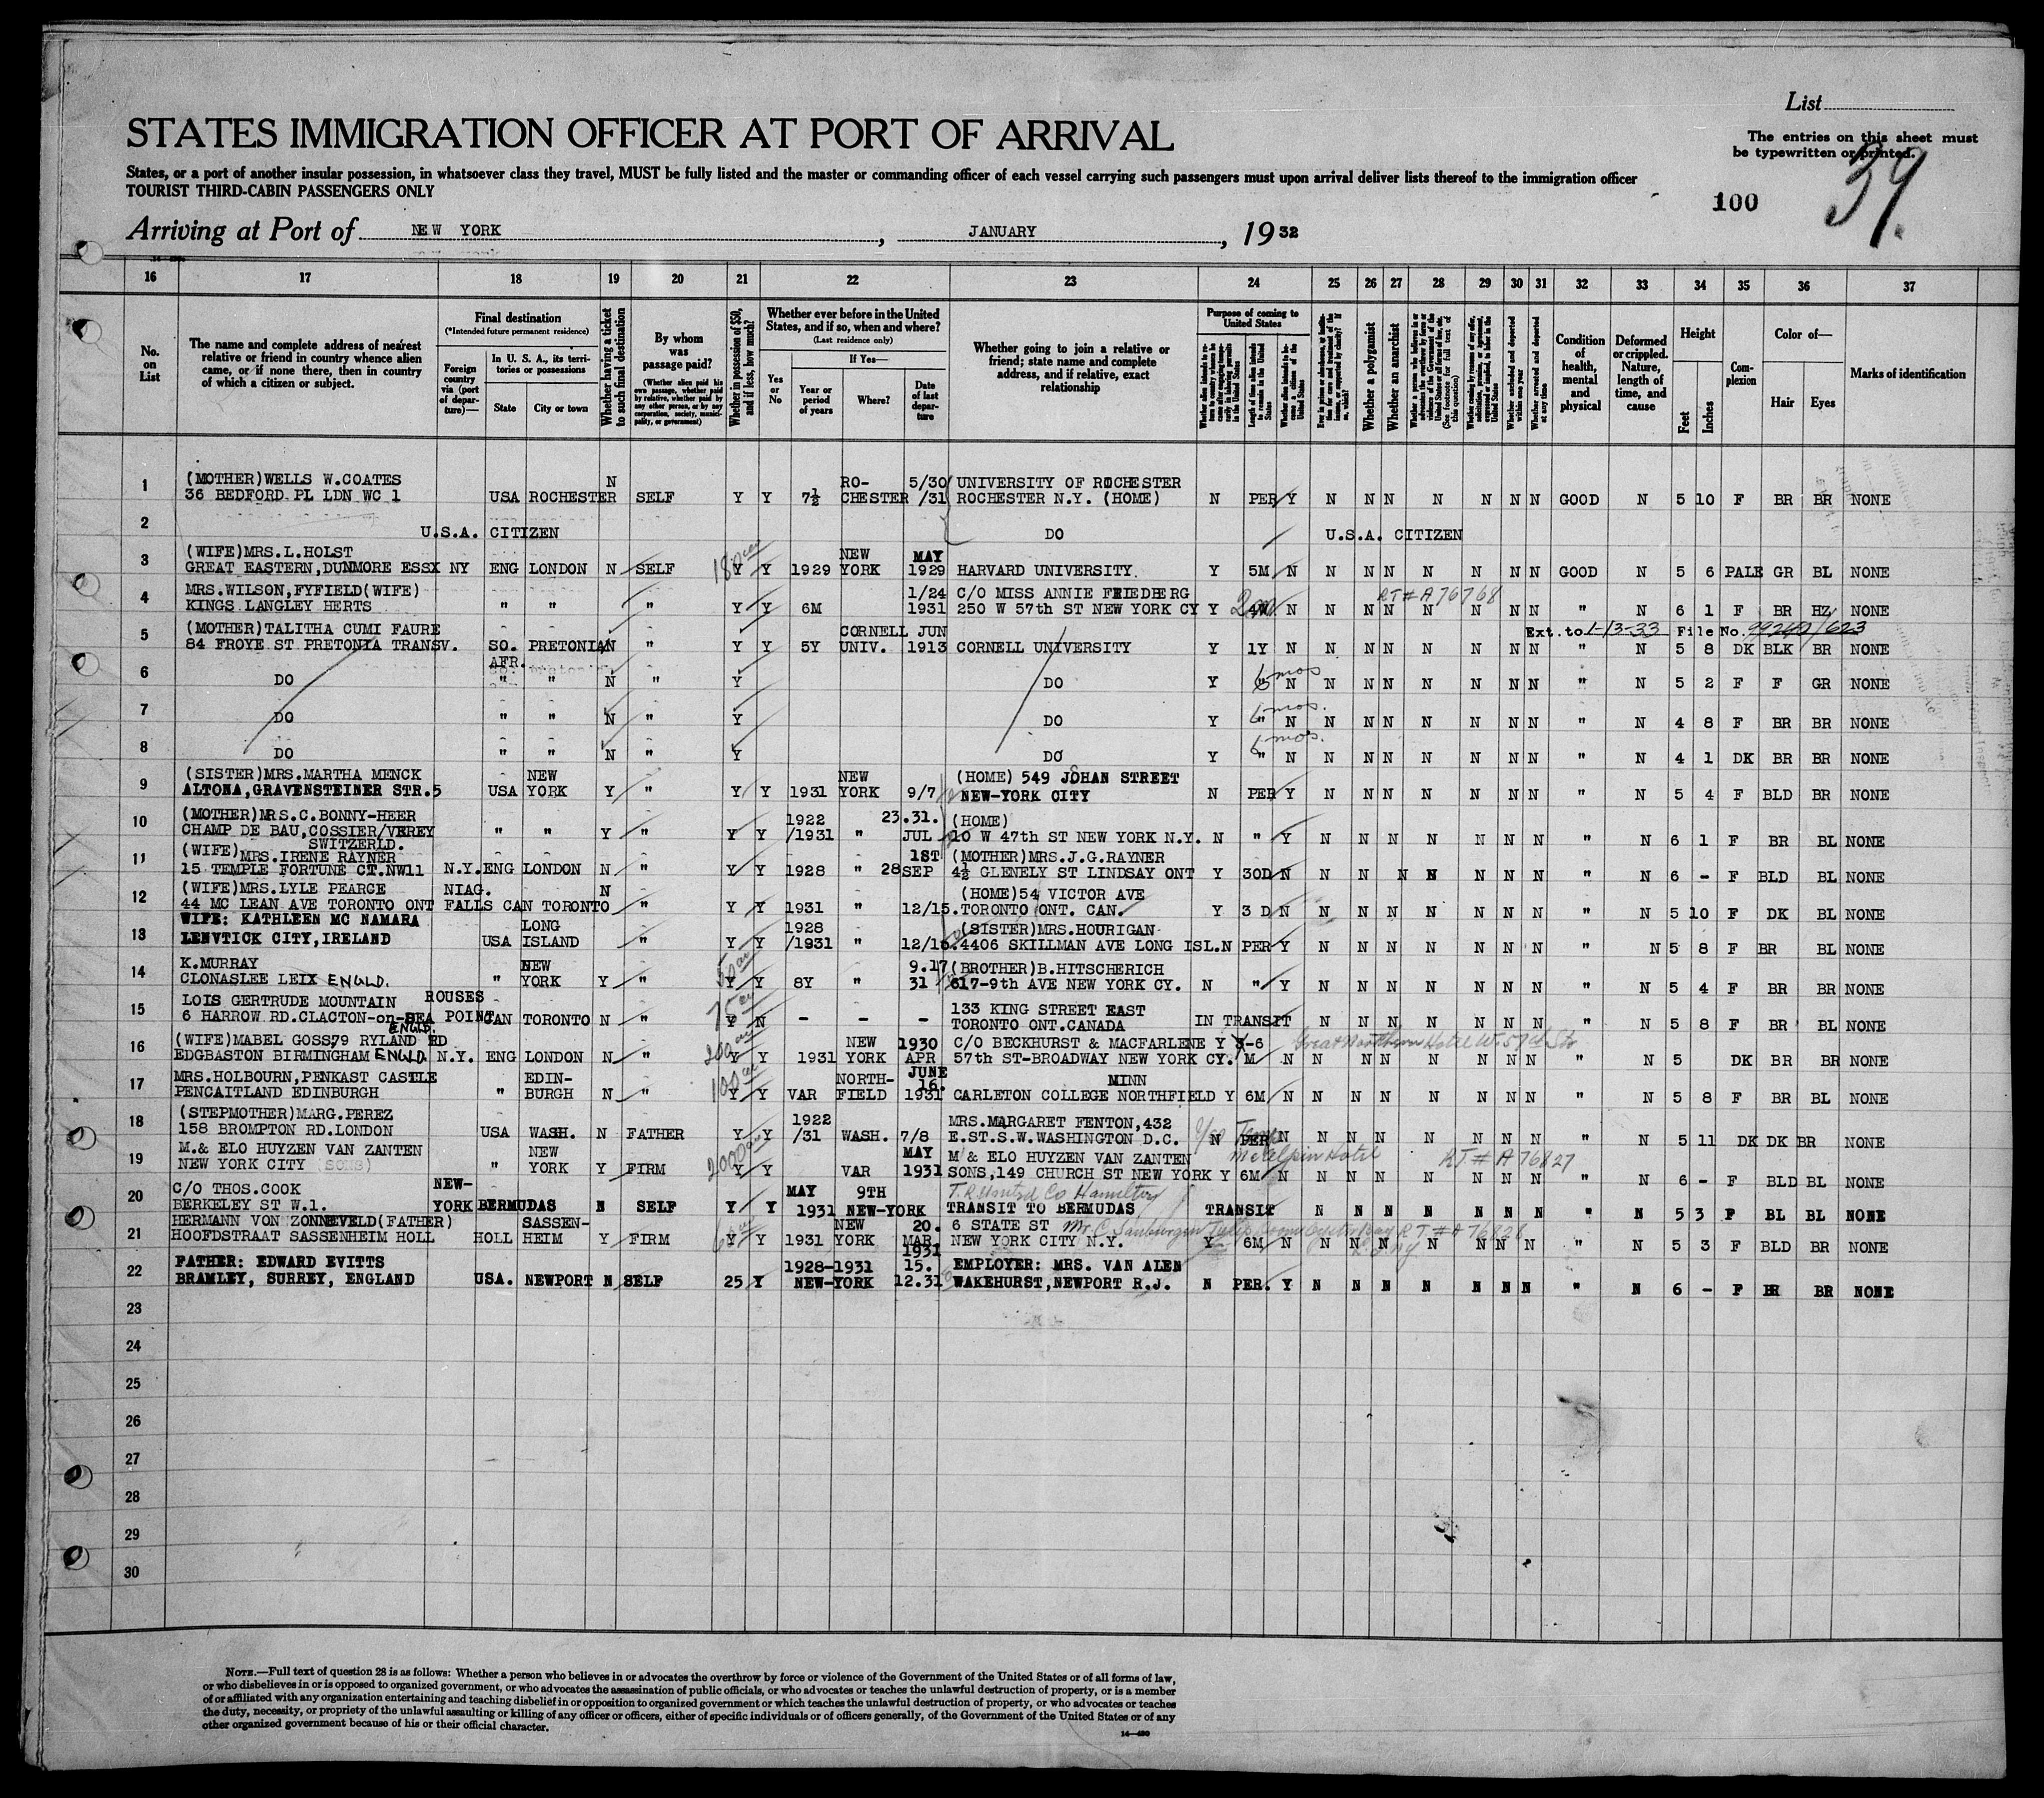 List
STATES IMMIGRATION OFFICER AT PORT OF ARRIVAL
The entries on this sheet must
be typewritten or printed.
States, or a port of another insular possession, in whatsoever class they travel, MUST be fully listed and the master or commanding officer of each vessel carrying such passengers must upon arrival deliver lists thereof to the immigration officer
TOURIST THIRD-CABIN PASSENGERS ONLY
100
Arriving at Port of NEW YORK, JANUARY, 1932
16 17 18 19 20 21 22 23 24 25 26 27 28 29 30 31 32 33 34 35 36 37
No. on List
The name and complete address of nearest relative or friend in country whence alien came, or if none there, then in country of which a citizen or subject.
Final destination
(*Intended future permanent residence)
Foreign country via (port of departure)—
In U. S. A., its territories or possessions
State
City or town
Whether having a ticket to such final destination
By whom was passage paid?
(Whether alien paid his own passage, whether paid by relative, whether paid by any other person, or by any corporation, society, municipality, or government)
Whether in possession of $50, and if less, how much?
Whether ever before in the United States, and if so, when and where?
(Last residence only)
Yes or No
If Yes—
Year or period of years
Where?
Date of last departure
Whether going to join a relative or friend; state name and complete address, and if relative, exact relationship
Purpose of coming to United States
Length of time alien intends to remain in the United States
Whether alien intends to become a citizen of the United States
Whether a polygamist
Whether an anarchist
Whether arrested and deported at any time
Condition of health, mental and physical
Deformed or crippled. Nature, length of time, and cause
Height
Feet
Inches
Complexion
Color of—
Hair
Eyes
Marks of identification
1 (MOTHER)WELLS W.COATES N RO- 5/30 UNIVERSITY OF ROCHESTER
36 BEDFORD PL LDN WC 1 USA ROCHESTER SELF Y Y 7½ CHESTER /31 ROCHESTER N.Y. (HOME) N PER Y N N N N N N N GOOD N 5 10 F BR BR NONE
2 U.S.A. CITIZEN DO U.S.A. CITIZEN
3 (WIFE)MRS.L.HOLST NEW MAY
GREAT EASTERN,DUNMORE ESSX NY ENG LONDON N SELF Y Y 1929 YORK 1929 HARVARD UNIVERSITY. Y 5M N N N N N N N N GOOD N 5 6 PALE GR BL NONE
4 MRS.WILSON,FYFIELD(WIFE) 1/24 C/O MISS ANNIE FRIEDBERG RT # A 76768
KINGS LANGLEY HERTS " " " Y Y 6M 1931 250 W 57th ST NEW YORK CY Y 2m N N N N N N N N " N 6 1 F BR HZ NONE
5 (MOTHER)TALITHA CUMI FAURE CORNELL JUN Ext. to 1-13-33 File No. 99240/623
84 FROYE ST PRETONIA TRANSV. SO. PRETONIA N " Y Y 5Y UNIV. 1913 CORNELL UNIVERSITY Y 1Y N N N N N N N N " N 5 8 DK BLK BR NONE
AFR.
6 DO " " N " Y DO Y 6 mos N N N N N N N N " N 5 2 F F GR NONE
7 DO " " N " Y DO Y 6 mos. N N N N N N N N " N 4 8 F BR BR NONE
8 DO " " N " Y DO Y 6 mos. N N N N N N N N " N 4 1 DK BR BR NONE
9 (SISTER)MRS.MARTHA MENCK NEW NEW (HOME) 549 JOHAN STREET
ALTONA,GRAVENSTEINER STR.5 USA YORK Y " Y Y 1931 YORK 9/7 NEW-YORK CITY N PER Y N N N N N N N " N 5 4 F BLD BR NONE
10 (MOTHER)MRS.C.BONNY-HEER 1922 23.31. (HOME)
CHAMP DE BAU,COSSIER/VEREY " " Y " Y Y /1931 " JUL 10 W 47th ST NEW YORK N.Y. N " Y N N N N N N N " N 6 1 F BR BL NONE
SWITZERLD.
11 (WIFE)MRS.IRENE RAYNER 1ST (MOTHER)MRS.J.G.RAYNER
15 TEMPLE FORTUNE CT.NW11 N.Y. ENG LONDON N " Y Y 1928 " 28 SEP 4½ GLENELY ST LINDSAY ONT Y 30D N N N N N N N N " N 6 - F BLD BL NONE
12 (WIFE)MRS.LYLE PEARCE NIAG. N (HOME)54 VICTOR AVE
44 MC LEAN AVE TORONTO ONT FALLS CAN TORONTO " Y Y 1931 " 12/15. TORONTO ONT. CAN. Y 3 D N N N N N N N N " N 5 10 F DK BL NONE
13 WIFE: KATHLEEN MC NAMARA LONG 1928 (SISTER)MRS.HOURIGAN
LENVTICK CITY,IRELAND USA ISLAND " Y Y /1931 " 12/15. 4406 SKILLMAN AVE LONG ISL. N PER Y N N N N N N N " N 5 8 F BR BL NONE
14 K.MURRAY NEW 9.17 (BROTHER)B.HITSCHERICH
CLONASLEE LEIX ENGLD. " YORK Y " Y Y 8Y " 31 617-9th AVE NEW YORK CY. N " Y N N N N N N N " N 5 4 F BR BR NONE
15 LOIS GERTRUDE MOUNTAIN ROUSES 133 KING STREET EAST
6 HARROW RD.CLACTON-on-SEA POINT CAN TORONTO N " 75 Y N - - - TORONTO ONT.CANADA IN TRANSIT N N N N N N N " N 5 8 F BR BL NONE
ENGLD.
16 (WIFE)MABEL GOSS,79 RYLAND RD NEW 1930 C/O BECKHURST & MACFARLENE Y 3-6 Great Northern Hotel W. 57th St
EDGBASTON BIRMINGHAM ENGLD. N.Y. ENG LONDON N " 200 Y Y 1931 YORK APR 57th ST-BROADWAY NEW YORK CY. M N N N N N N N N " N 5 DK BR BR NONE
17 MRS.HOLBOURN,PENKAST CASTLE EDIN- NORTH- JUNE 16. MINN
PENCAITLAND EDINBURGH " BURGH N " 100 Y Y VAR FIELD 1931 CARLETON COLLEGE NORTHFIELD Y 6M N N N N N N N N " N 5 8 F BR BL NONE
18 (STEPMOTHER)MARG.PEREZ 1922 MRS.MARGARET FENTON,432
158 BROMPTON RD.LONDON USA WASH. N FATHER Y Y /31 WASH. 7/8 E.ST.S.W.WASHINGTON D.C. N PER N N N N N N N N " N 5 11 DK DK BR NONE
19 M.& ELO HUYZEN VAN ZANTEN NEW MAY M & ELO HUYZEN VAN ZANTEN McAlpin Hotel RT # A 76827
NEW YORK CITY (SONS) " YORK Y FIRM 2000 Y Y VAR 1931 SONS,149 CHURCH ST NEW YORK Y 6M N N N N N N N N " N 6 - F BLD BL NONE
20 C/O THOS.COOK NEW- MAY 9TH Hamilton
BERKELEY ST W.1. YORK BERMUDAS N SELF Y Y 1931 NEW-YORK TRANSIT TO BERMUDAS TRANSIT N N N N N N N " N 5 3 F BL BL NONE
21 HERMANN VON ZONNEVELD(FATHER) SASSEN- NEW 20. 6 STATE ST RT # A 76828
HOOFDSTRAAT SASSENHEIM HOLL HOLL HEIM Y FIRM Y Y 1931 YORK MAR. 1931 NEW YORK CITY N.Y. Y 6M N N N N N N N N " N 5 3 F BLD BR NONE
22 FATHER: EDWARD EVITTS 1928-1931 15. EMPLOYER: MRS. VAN ALEN
BRAMLEY, SURREY, ENGLAND USA. NEWPORT N SELF 25 Y NEW-YORK 12.31 WAKEHURST,NEWPORT R.J. N PER. Y N N N N N N N " N 6 - F BR BR NONE
23
24
25
26
27
28
29
30
NOTE.—Full text of question 28 is as follows: Whether a person who believes in or advocates the overthrow by force or violence of the Government of the United States or of all forms of law,
or who disbelieves in or is opposed to organized government, or who advocates the assassination of public officials, or who advocates or teaches the unlawful destruction of property, or is a member
of or affiliated with any organization entertaining and teaching disbelief in or opposition to organized government or which teaches the unlawful destruction of property, or who advocates or teaches
the duty, necessity, or propriety of the unlawful assaulting or killing of any officer or officers, either of specific individuals or of officers generally, of the Government of the United States or of any
other organized government because of his or their official character.